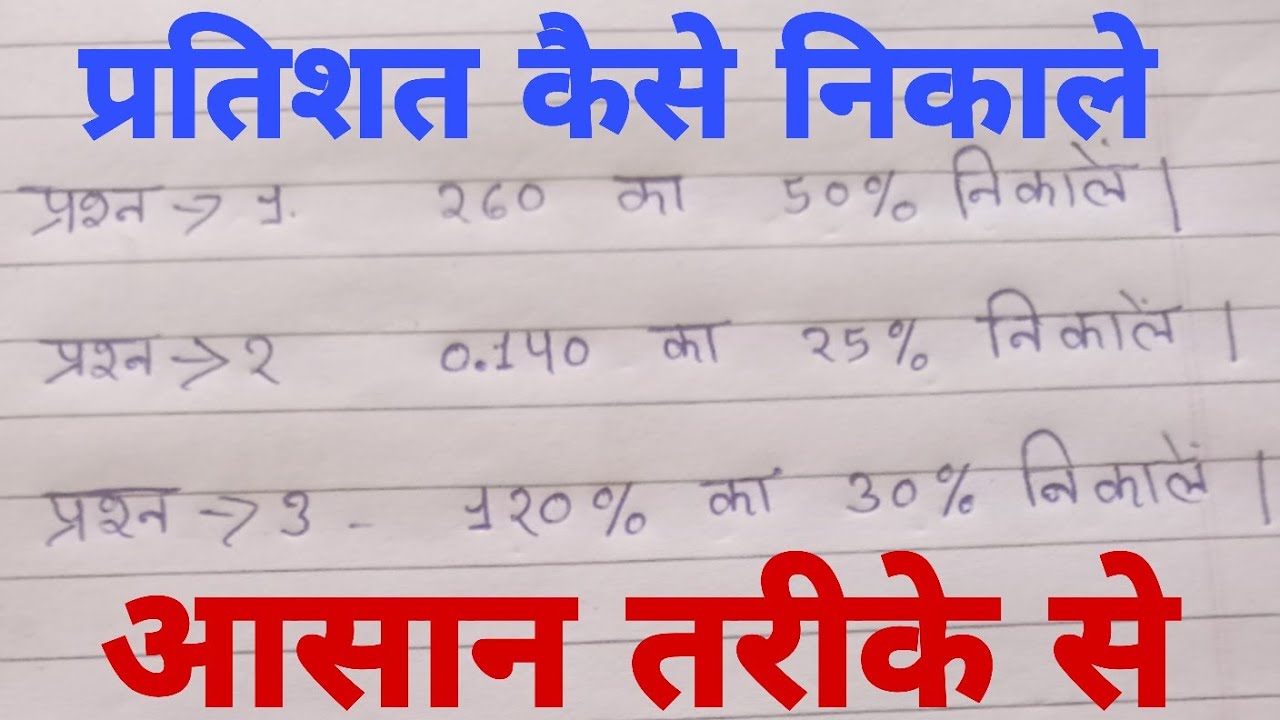 प्रतिशत कैसे निकाले
प्रश्न → 1. 260 का 50% निकालें |
प्रश्न → 2 0.140 का 25% निकालें |
प्रश्न → 3 - 120% का 30% निकालें |
आसान तरीके से